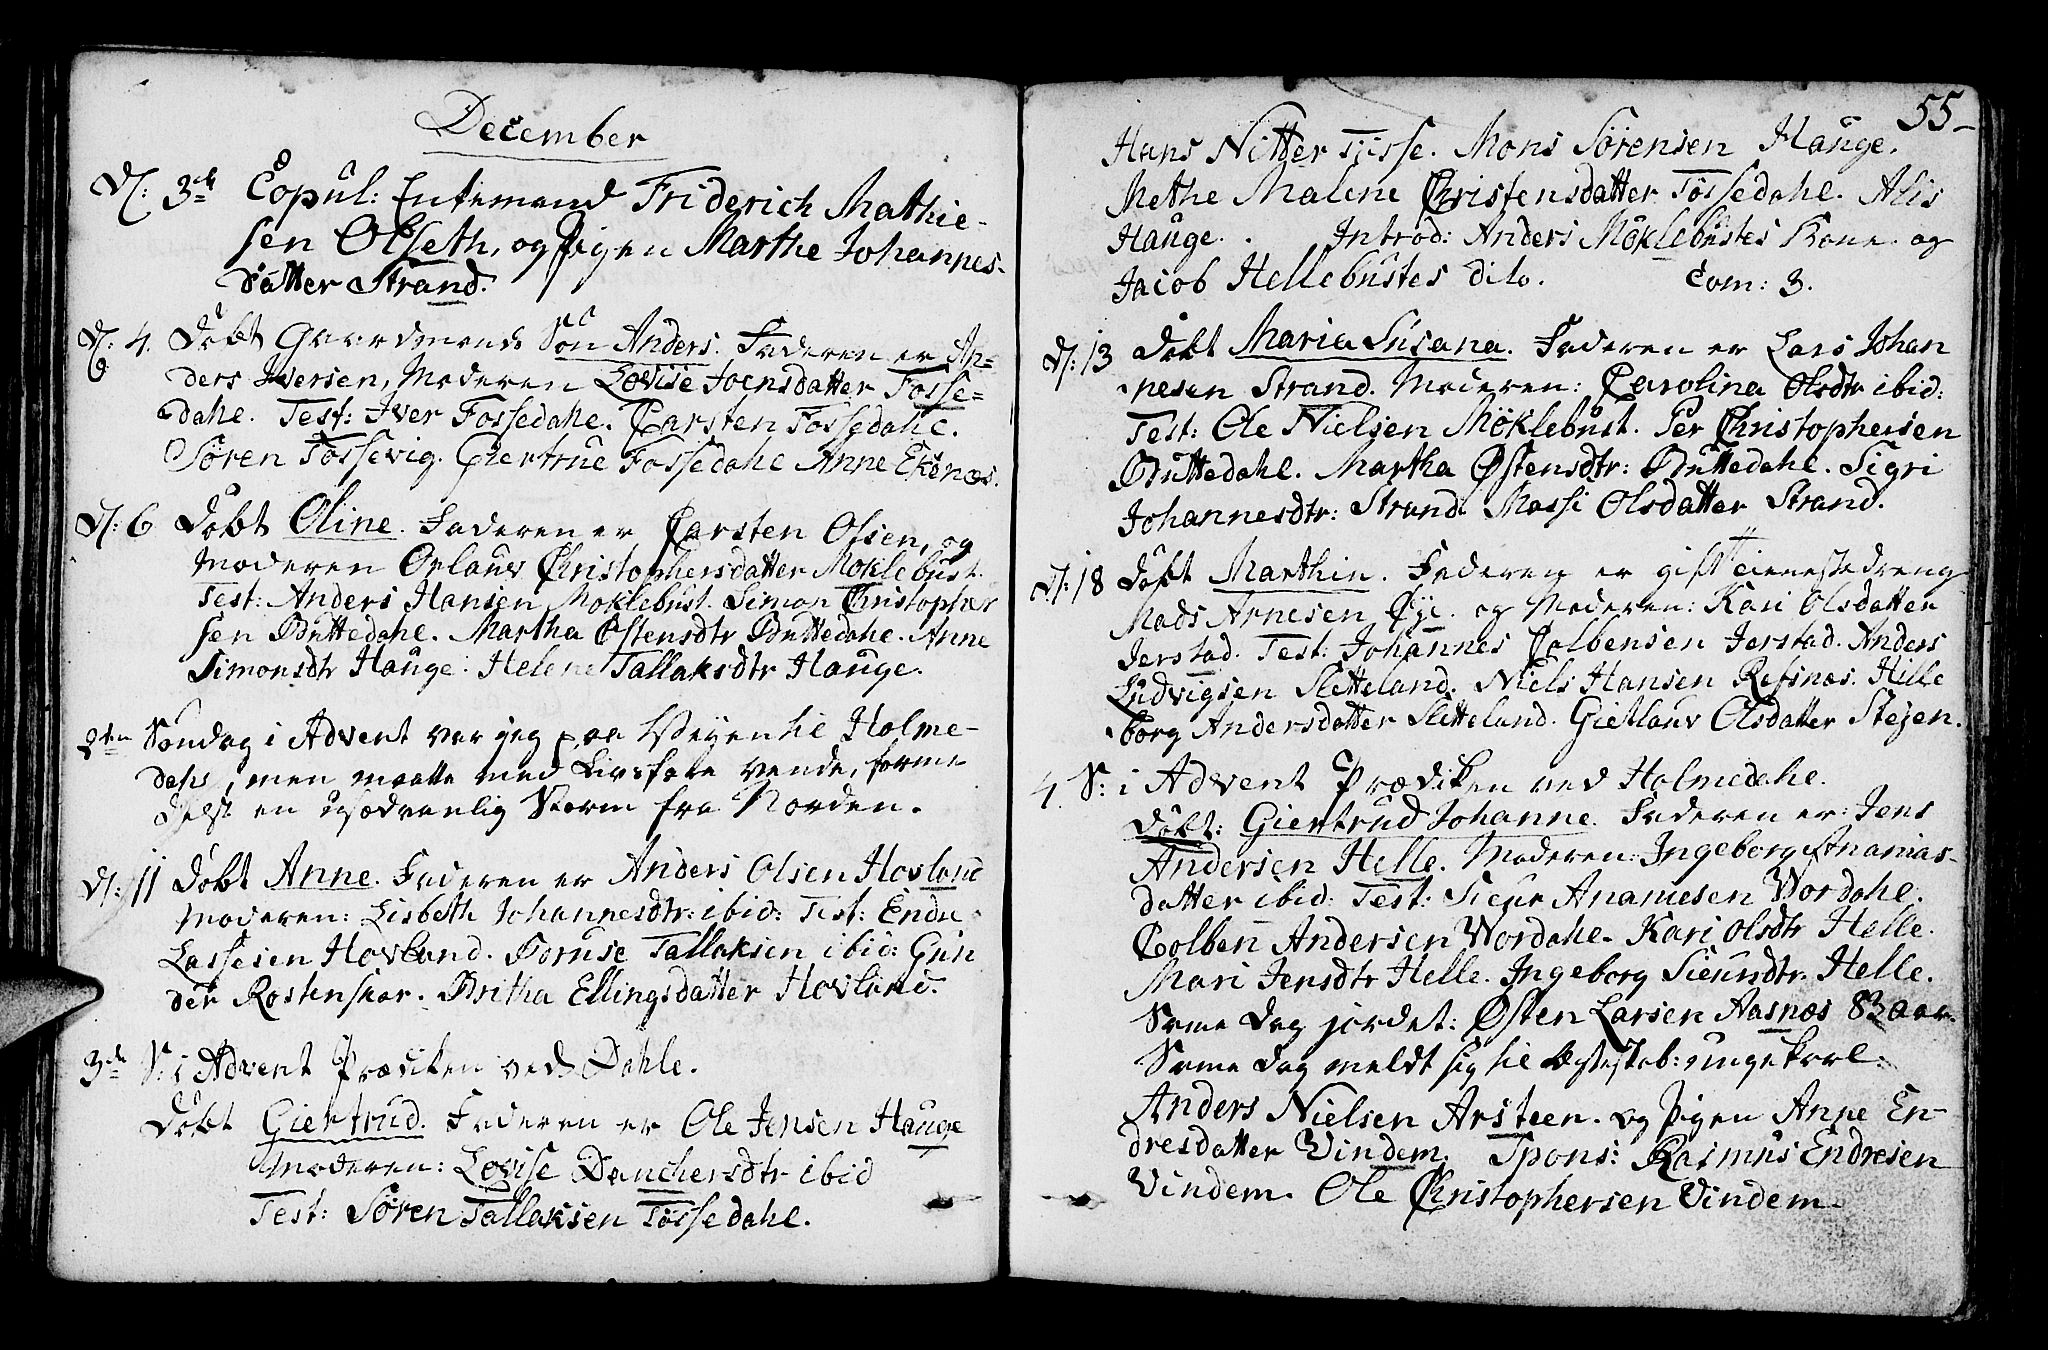 December
D: 3de Copul: Enkemand Friderich Mathie-
sen Olseth, og Pigen Marthe Johannes-
datter Strand.
D: 4. Döbt Gaardmands Sön Anders. Faderen er An-
ders Iversen, Moderen Lovise Joensdatter Fosse=
dahl. Test: Iver Fossedahl. Carsten Fossedahl.
Sören Fossevig. Giertrue Fossedahl Anne Ekenæs.
D: 6 Döbt Oline. Faderen er Carsten Olsen, og
Moderen Orlaug Christophersdatter Moklebust.
Test: Anders Hansen Moklebust. Simon Christopher
sen Buttedahl. Martha Östensdtr Buttedahl. Anne
Simonsdtr Hauge. Helene Tallaksdtr Hauge.
2den Söndag i Advent var jeg paa Veyen til Holme-
dahl, men maatte med Livsfare vende, forme
delst en usædvanlig Storm fra Norden.
D: 11 Döbt Anne. Faderen er Anders Olsen Hovland
Moderen: Lisbeth Johannesdtr: ibid: Test: Endre
Lassesen Hovland. Toruse Tallaksen ibid: Gun
der Rostenskar. Britha Ellingsdatter Hovland.
3de S: i Advent Prædiken ved Dahle.
Döbt Giertrud. Faderen er Ole Jensen Hauge
Moderen: Lovise Danchersdtr ibid
Test: Sören Tallaksen Tossedahl.
55-
Hans Nitter Tysse. Mons Sörensen Hauge.
Methe Malene Christensdatter Tossedahl. Alis
Hauge. Introd: Anders Möklebustes Kone. og
Jacob Hellebustes dito. Com: 3.
D: 13 Döbt Maria Susana. Faderen er Lars Johan
nesen Strand. Moderen: Carolina Olsdtr ibid:
Test: Ole Nielsen Möklebust. Per Christophersen
Buttedahl. Martha Östensdtr: Buttedahl. Sigri
Johannesdtr: Strand. Massi Olsdatter Strand.
D: 18 Döbt Marthin. Faderen er gift tienestedreng
Mads Arnesen Öye. og Moderen: Kari Olsdatter
Jerstad. Test: Johannes Colbensen Jerstad. Anders
Ludvigsen Sletteland. Niels Hansen Refsnæs. Hille
borg Andersdatter Sletteland. Gietlaug Olsdatter Steyen.
4. S: i Advent Prædiken ved Holmedahl.
Döbt: Giertrud Johanne. Faderen er: Jens
Andersen Helle. Moderen: Ingeborg Ananias-
datter ibid: Test: Siur Ananiesen Vordahl.
Colben Andersen Vordahl. Kari Olsdtr Helle.
Mari Jensdtr Helle. Ingeborg Siursdtr. Helle.
Same Dag jordet: Östen Larsen Aasnæs 83 aar.
Same Dag meldt sig til Ægteskab: ungekarl:
Anders Nielsen Arsteen. og Pigen Anne En-
dresdatter Vindem. Spons: Rasmus Endresen
Vindem. Ole Christophersen Vindem.